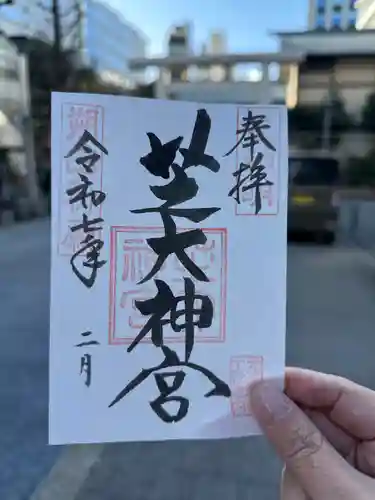 奉拝
芝大神宮
令和七年
二月